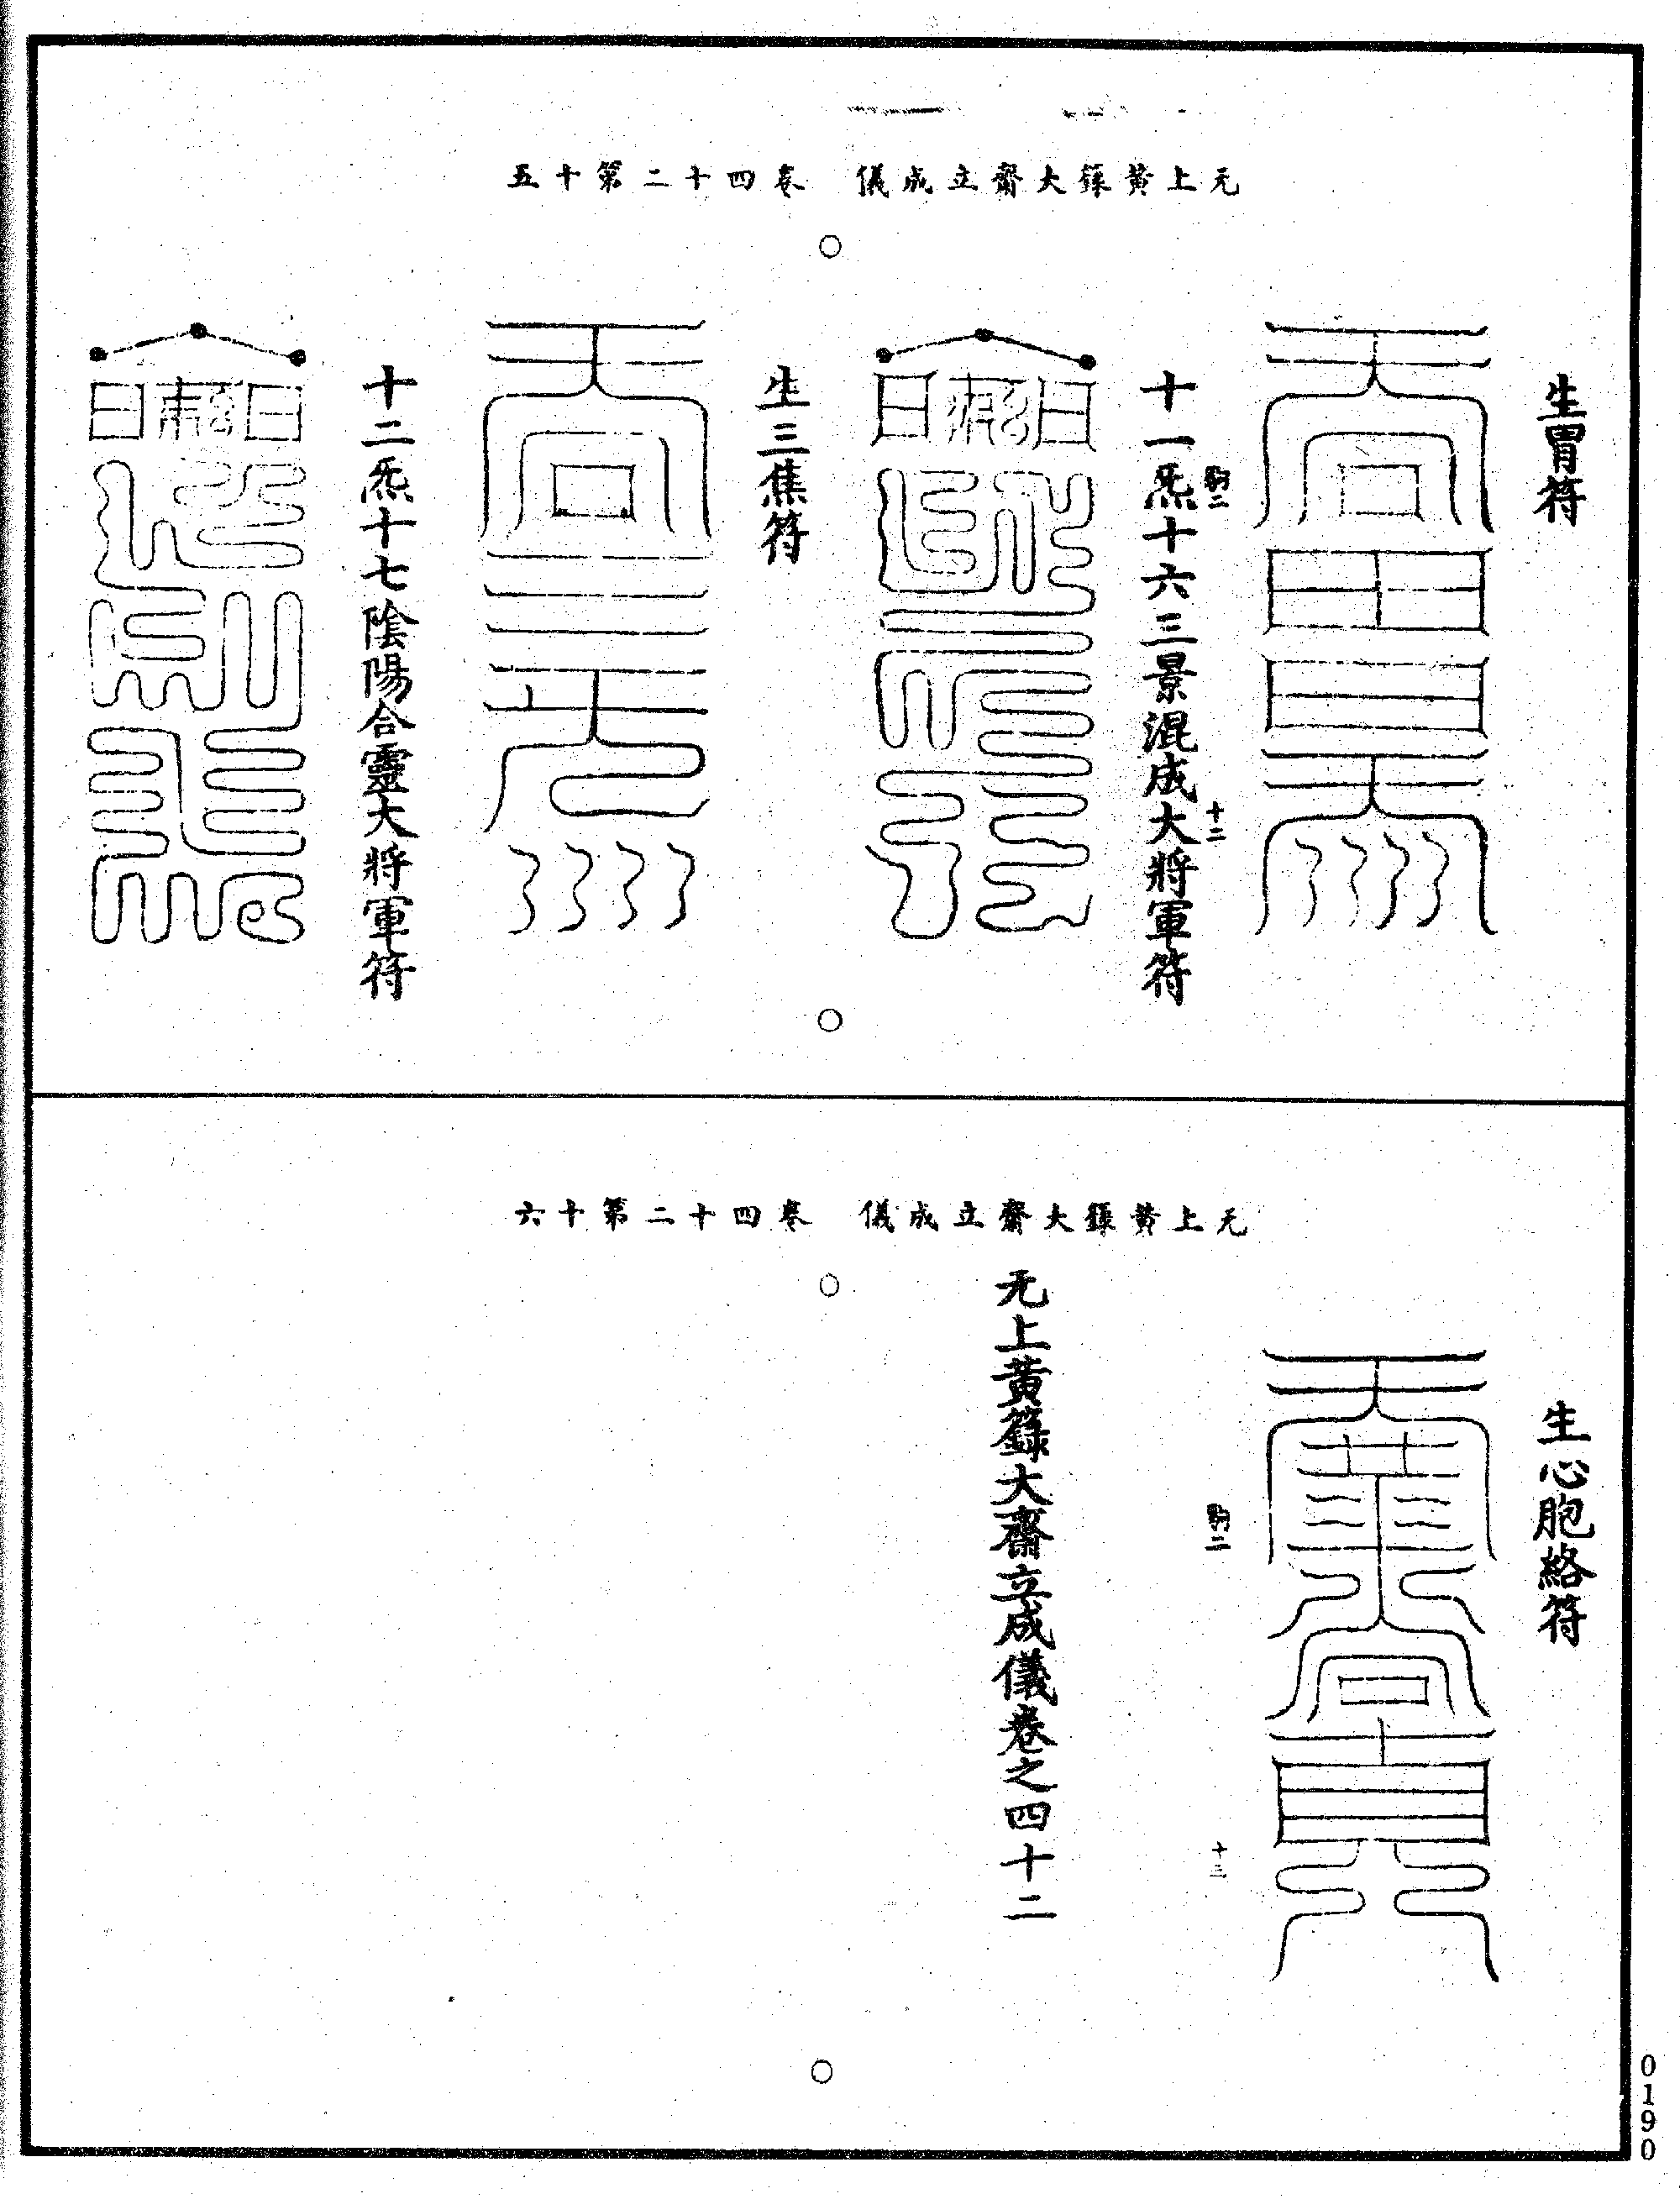 无上黃籙大齋立成儀　卷四十二第十五
生胃符
十一炁十六三景混成大將軍符
十二
生三焦符
十二炁十七陰陽合靈大將軍符
无上黃籙大齋立成儀　卷四十二第十六
生心胞絡符
十三
无上黃籙大齋立成儀卷之四十二
0190